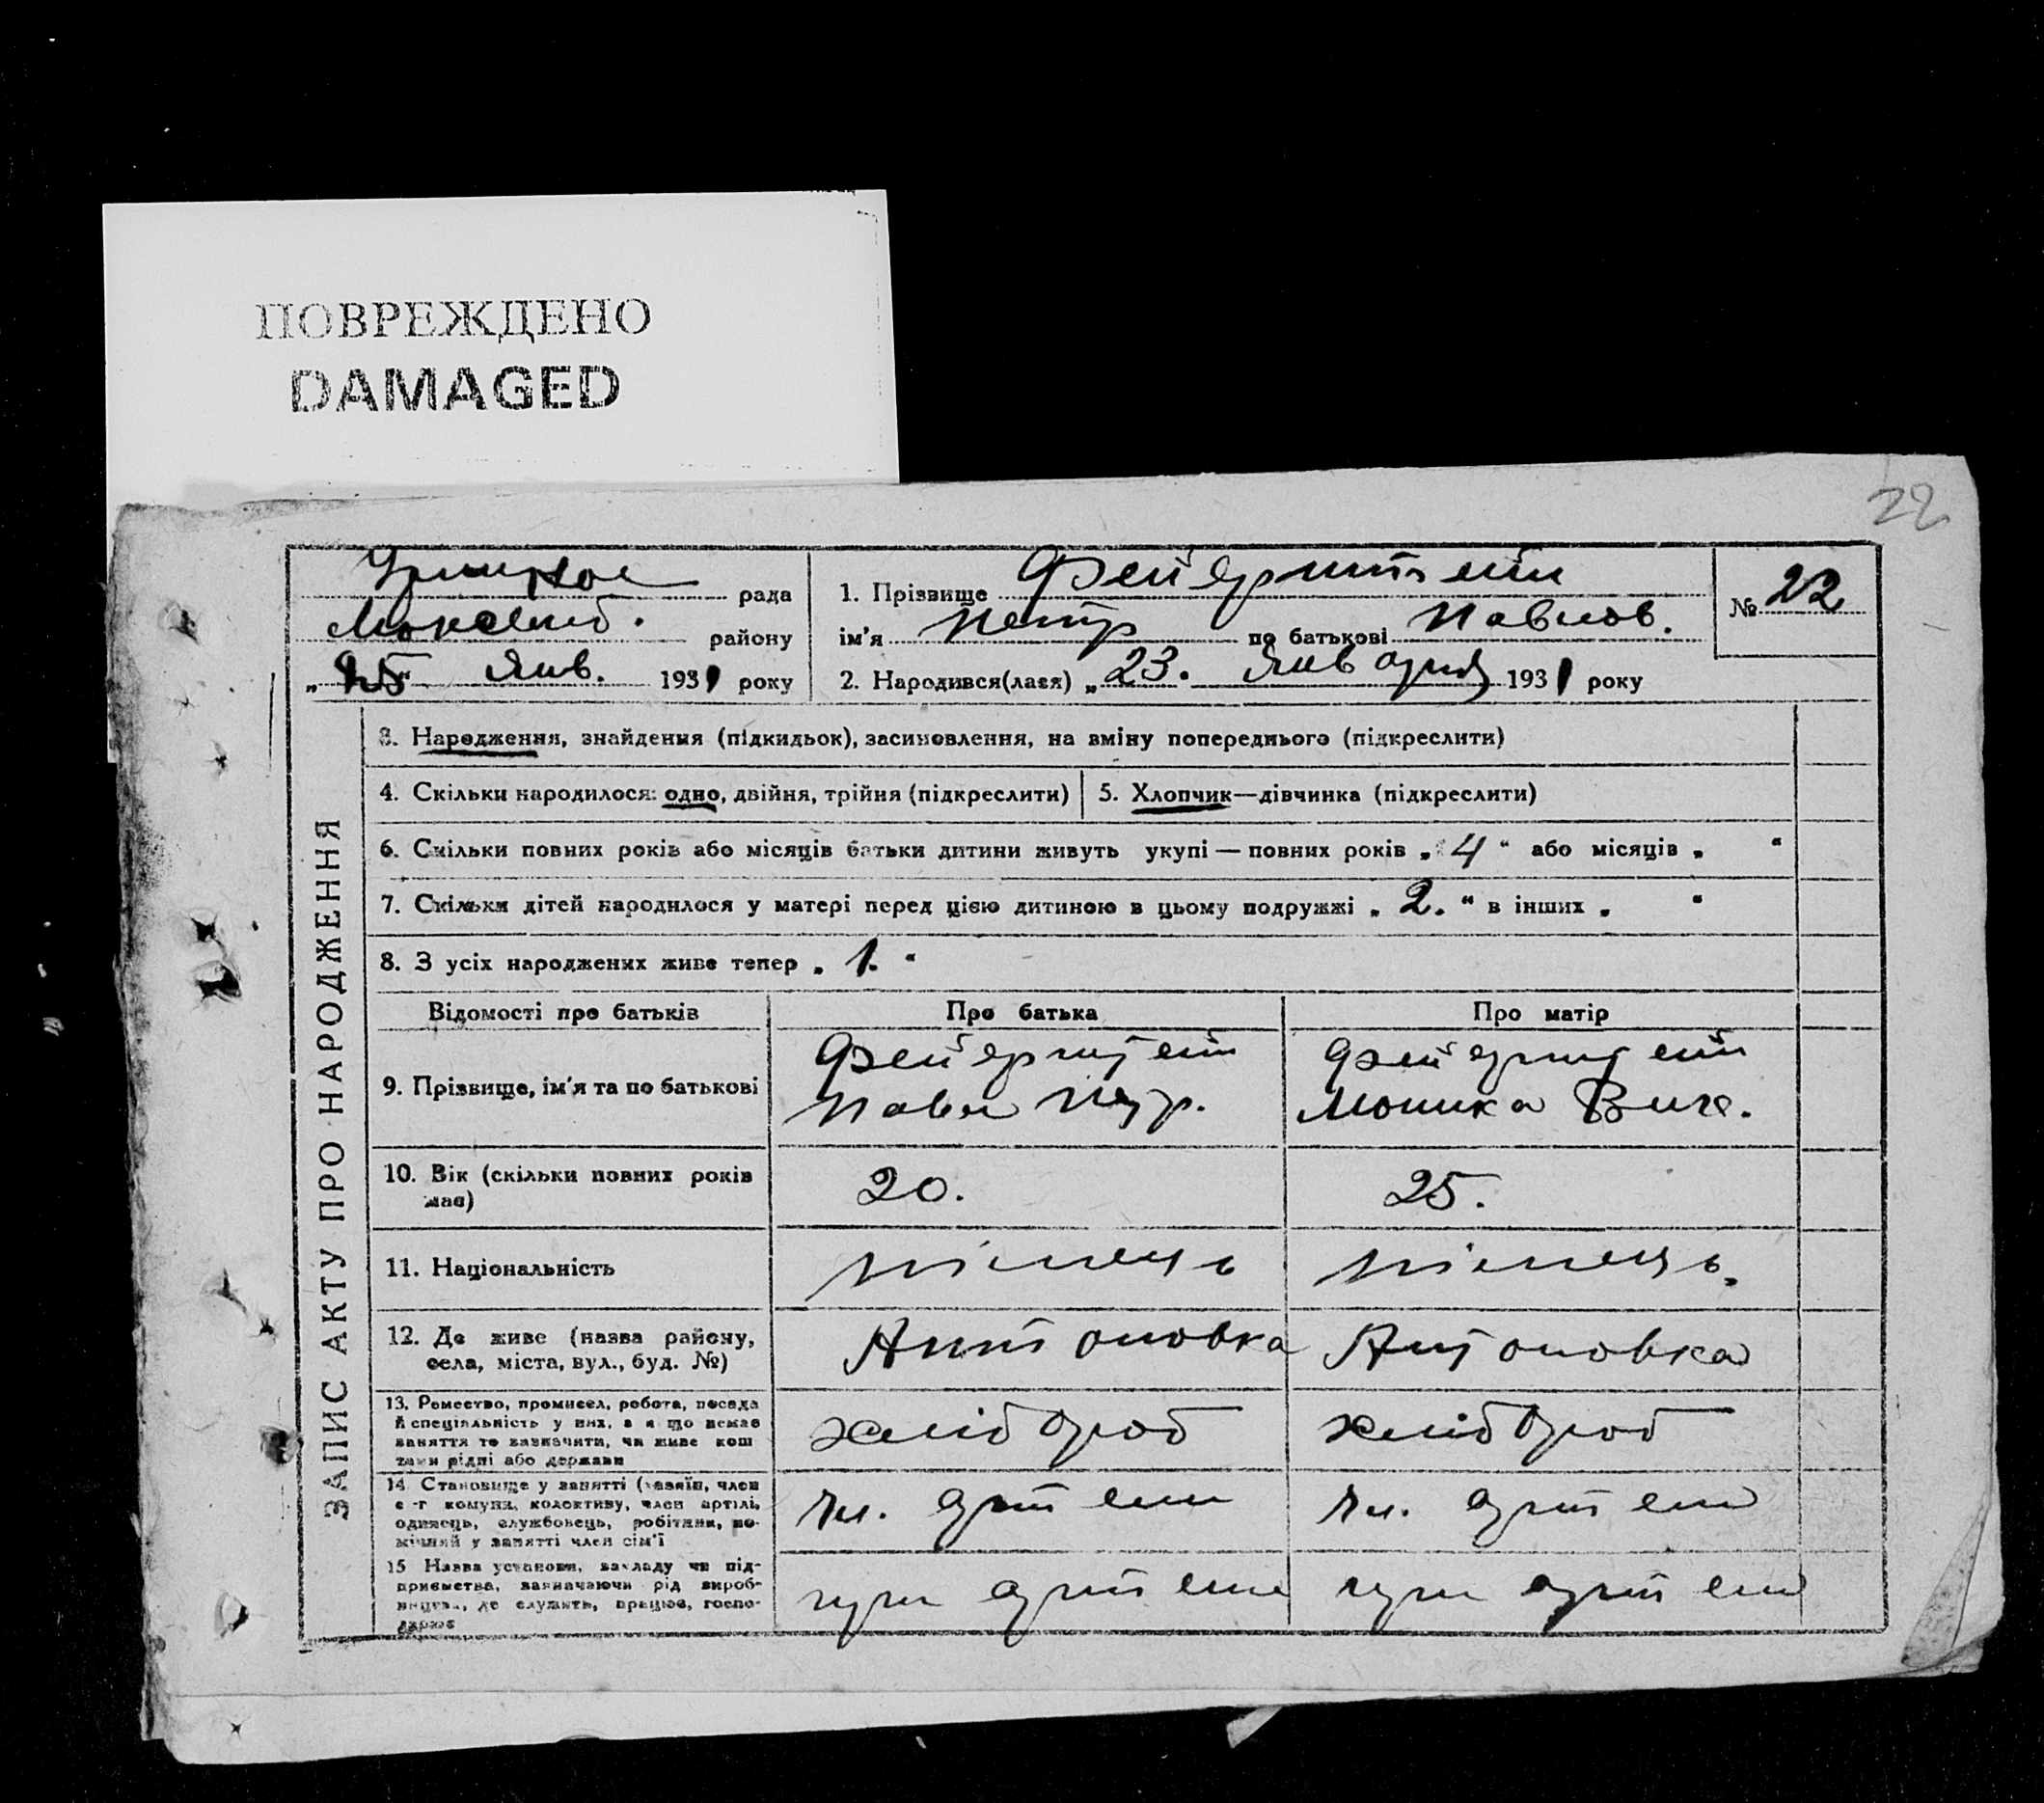 ПОВРЕЖДЕНО
DAMAGED
22
рада
району
„25“ Янв. 1931 року
1. Прізвище Фейерштейн
ім'я Петр по батькові Павлов.
2. Народився(лася) „23. января 1931 року
№ 22
ЗАПИС АКТУ ПРО НАРОДЖЕННЯ
3. Народження, знайдення (підкидьок), засиновлення, на вміну попереднього (підкреслити)
4. Скільки народилося: одно, двійня, трійня (підкреслити)
5. Хлопчик—дівчинка (підкреслити)
6. Скільки повних років або місяців батьки дитини живуть укупі — повних років „4“ або місяців „ “
7. Скільки дітей народилося у матері перед цією дитиною в цьому подружжі „2.“ в інших „ “
8. З усіх народжених живе тепер „1.“
Відомості про батьків
Про батька
Про матір
9. Прізвище, ім'я та по батькові
Фейерштейн
Павел Петр.
Фейерштейн
Моника
10. Вік (скільки повних років
має)
20.
25.
11. Національність
німець
німець.
12. Де живе (назва району,
села, міста, вул., буд. №)
Антоновка
Антоновка
13. Ремество, промисел, робота, посада
й спеціяльність у них, а якщо немає
заняття то зазначити, чи живе кош
тами рідні або держави
хлібороб
хлібороб
14. Становище у занятті (хазяїн, член
с-г комуни, колективу, член артілі,
одинець, службовець, робітник, по-
мічний у занятті член сім'ї
чл. артели
чл. артели
15 Назва установи, закладу чи під-
приємства, зазначаючи рід вироб-
ництва, де служить, працює, госпо-
дарює
при артели
при артели